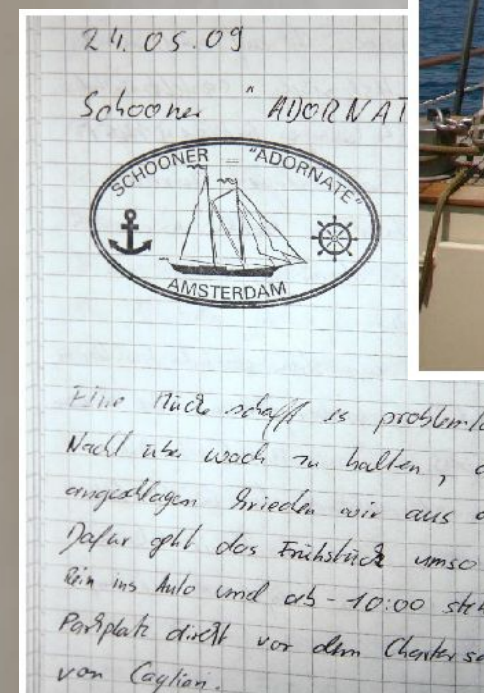 24.05.09
Schooner "ADORNAT
SCHOONER "ADORNATE"
AMSTERDAM
Eine Mücke schafft es problemlo
Nacht über wach zu halten,
angeschlagen kriechen wir aus
Dafür geht das Frühstück umso
Rein ins Auto und ab - 10:00 steh
Parkplatz direkt vor dem Charter
von Caglian.